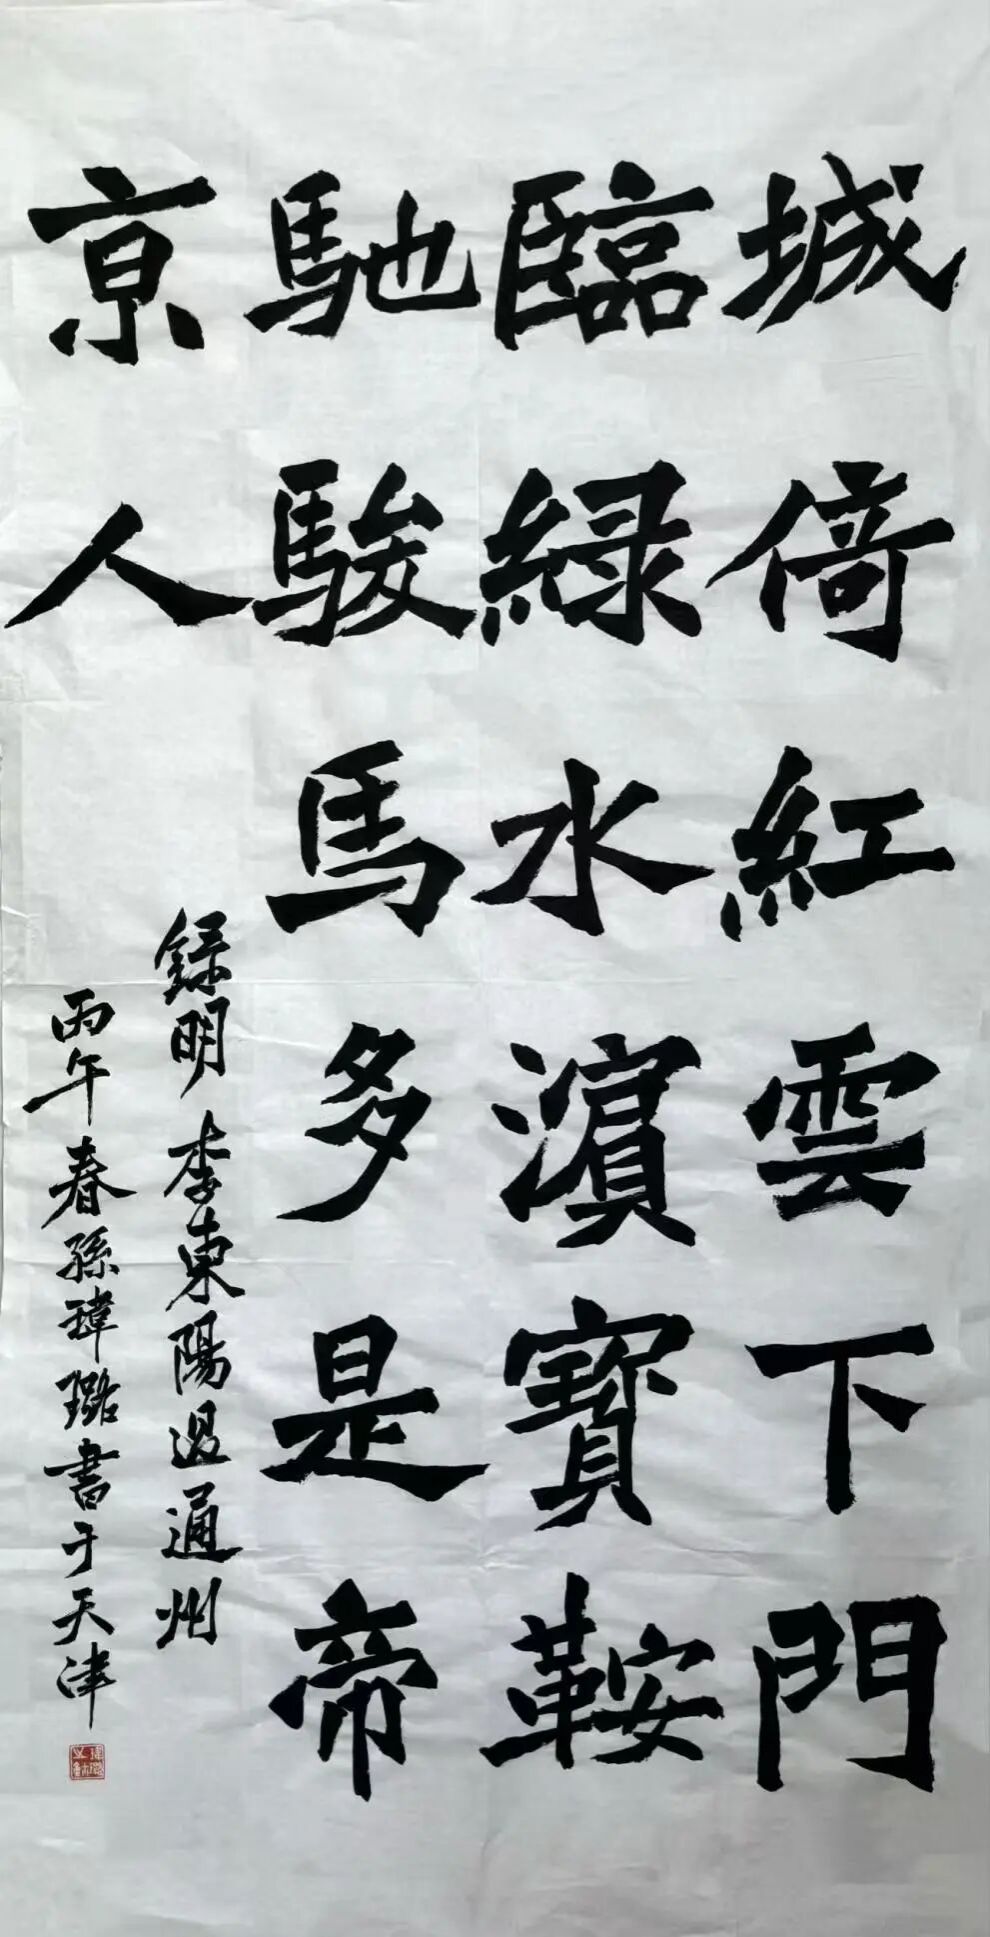 城倚紅雲下門
臨綠水濵寶鞍
馳駿馬多是帝
京人
錄明李東陽過通州
丙午春孫瑋璐書于天津